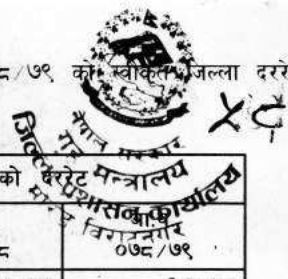 ८/७९ को स्वीकृत जिल्ला दररे
५८
नेपाल सरकार
गृह मन्त्रालय
जिल्ला प्रशासन कार्यालय
विराटनगर
को दररेट
आ.व
८
०७८/७९